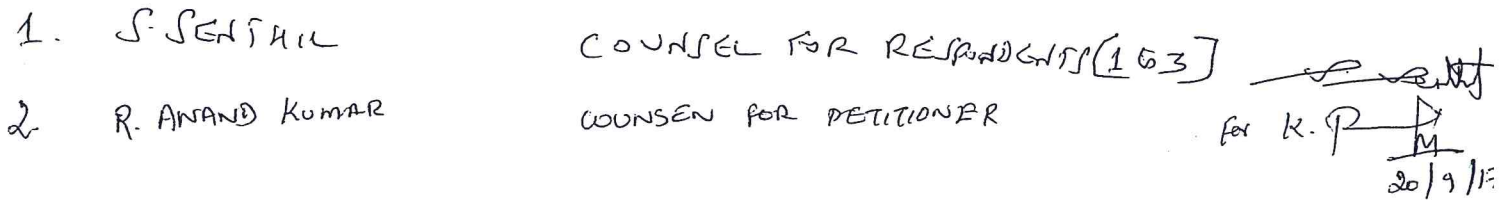 1. S. SENTHIL COUNSEL FOR RESPONDENTS [1 to 3]
2. R. ANAND KUMAR COUNSEN FOR PETITIONER for K. P
20/9/13